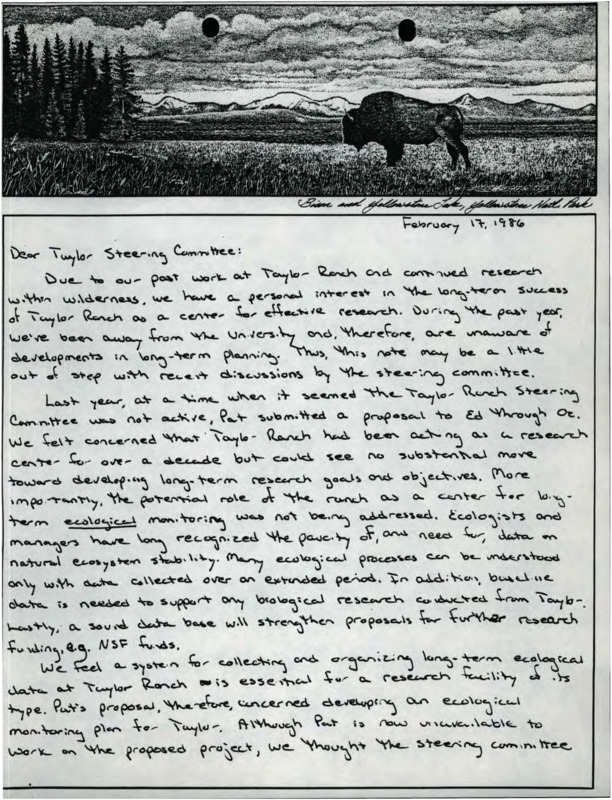 Bison and Yellowstone Lake, Yellowstone Natl. Park
February 17, 1986
Dear Taylor Steering Committee:
Due to our past work at Taylor Ranch and continued research
within wilderness, we have a personal interest in the long-term success
of Taylor Ranch as a center for effective research. During the past year,
we've been away from the University and, therefore, are unaware of
developments in long-term planning. Thus, this note may be a little
out of step with recent discussions by the steering committee.
Last year, at a time when it seemed the Taylor Ranch Steering
Committee was not active, Pat submitted a proposal to Ed through Oz.
We felt concerned that Taylor Ranch had been acting as a research
center for over a decade but could see no substantial move
toward developing long-term research goals and objectives. More
importantly, the potential role of the ranch as a center for long-
term ecological monitoring was not being addressed. Ecologists and
managers have long recognized the paucity of, and need for, data on
natural ecosystem stability. Many ecological processes can be understood
only with data collected over an extended period. In addition, baseline
data is needed to support any biological research conducted from Taylor.
Lastly, a sound data base will strengthen proposals for further research
funding, e.g. NSF funds.
We feel a system for collecting and organizing long-term ecological
data at Taylor Ranch is essential for a research facility of its
type. Pat's proposal, therefore, concerned developing an ecological
monitoring plan for Taylor. Although Pat is now unavailable to
work on the proposed project, we thought the steering committee